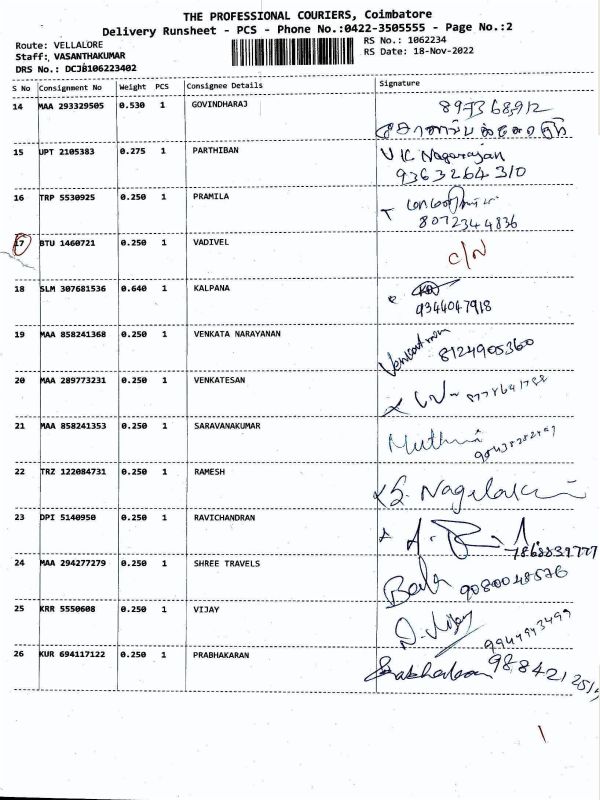 THE PROFESSIONAL COURIERS, Coimbatore
Delivery Runsheet - PCS - Phone No.:0422-3505555 - Page No.:2
Route: VELLALORE
RS No.: 1062234
Staff: VASANTHAKUMAR
RS Date: 18-Nov-2022
DRS No.: DCJB106223402
S No Consignment No Weight PCS Consignee Details Signature
14 MAA 293329505 0.530 1 GOVINDHARAJ
15 UPT 2105383 0.275 1 PARTHIBAN V K Nagarajan
9363264310
16 TRP 5530925 0.250 1 PRAMILA
8072344836
17 BTU 1460721 0.250 1 VADIVEL C/N
18 SLM 307681536 0.640 1 KALPANA
9344047918
19 MAA 858241368 0.250 1 VENKATA NARAYANAN 8124905360
20 MAA 289773231 0.250 1 VENKATESAN
21 MAA 858241353 0.250 1 SARAVANAKUMAR
22 TRZ 122084731 0.250 1 RAMESH
23 DPI 5140950 0.250 1 RAVICHANDRAN
24 MAA 294277279 0.250 1 SHREE TRAVELS Bala 9080048576
25 KRR 5550608 0.250 1 VIJAY D. Vijay 9944943499
26 KUR 694117122 0.250 1 PRABHAKARAN